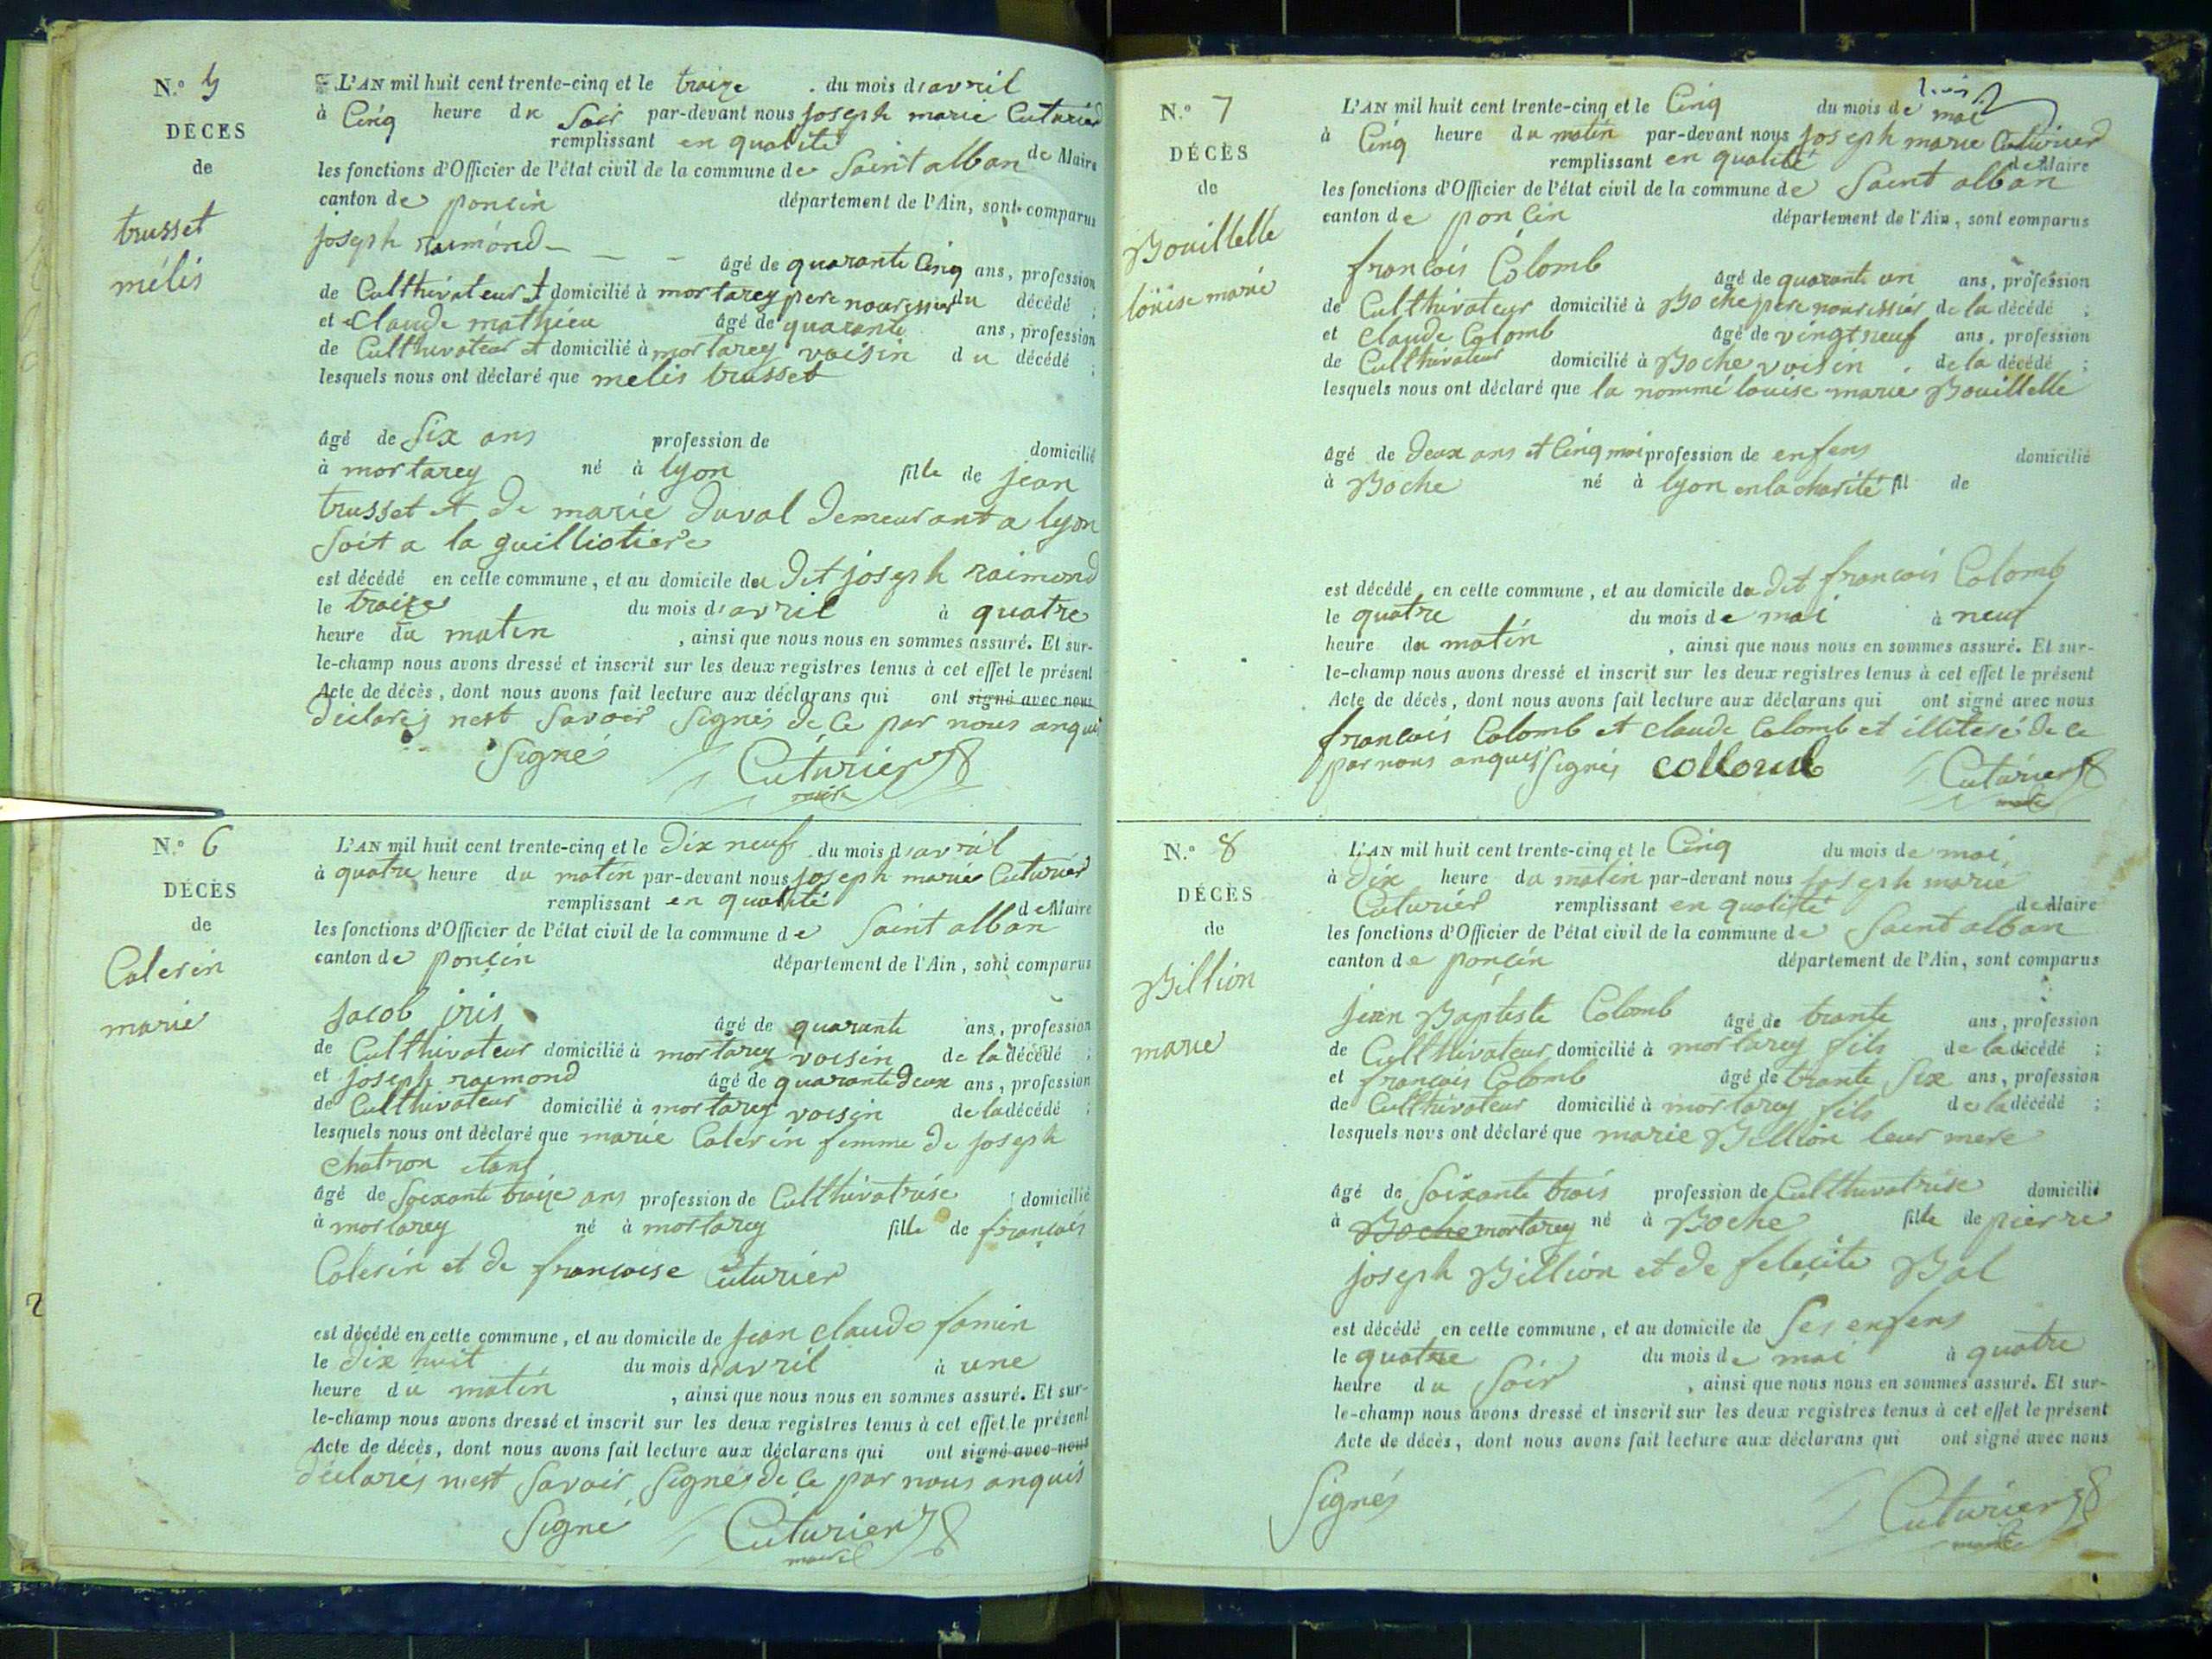 N.° 5
DÉCES
de
trusset
mélis
L'AN mil huit cent trente-cinq et le traize du mois d'avril
à Cinq heure du Soir par-devant nous joseph marie Cuturier
remplissant en qualité de Maire
les fonctions d'Officier de l'état civil de la commune de Saint alban
canton de poncin département de l'Ain, sont comparus
joseph raimond
âgé de quarante Cinq ans, profession
de Culthivateur et domicilié à mortarey pere nouressier du décédé ;
et Claude mathieu âgé de quarante ans, profession
de Culthivateur et domicilié à mortarey voisin du décédé ;
lesquels nous ont déclaré que melis trusset
âgé de Six ans profession de domicilié
à mortarey né à lyon fille de jean
trusset et de marie duval demeurant a lyon
Soit a la guilliotiere
est décédé en cette commune, et au domicile du dit joseph raimond
le traize du mois d'avril à quatre
heure du matin , ainsi que nous nous en sommes assuré. Et sur-
le-champ nous avons dressé et inscrit sur les deux registres tenus à cet effet le présent
Acte de décès, dont nous avons fait lecture aux déclarans qui ont signé avec nous
déclarés nest Savoir Signés de Ce par nous anquis
Signé Cuturier
maire
N.° 6
DÉCÈS
de
Colerin
marie
L'AN mil huit cent trente-cinq et le Dix neuf du mois d'avril
à quatre heure du matin par-devant nous joseph marie Cuturier
remplissant en qualité de Maire
les fonctions d'Officier de l'état civil de la commune de Saint alban
canton de poncin département de l'Ain, sont comparus
jacob iris
âgé de quarante ans, profession
de Culthivateur domicilié à mortarey voisin de la décédé ;
et joseph raimond âgé de quarante deux ans, profession
de Culthivateur domicilié à mortarey voisin de la décédé ;
lesquels nous ont déclaré que marie Colerin femme de joseph
chatron etant
âgé de Soixante traize ans profession de Culthivatrise domicilié
à mortarey né à mortarey fille de francois
Colerin et de francoise Cuturier
est décédé en cette commune, et au domicile de jean claude famin
le dix huit du mois d'avril à une
heure du matin , ainsi que nous nous en sommes assuré. Et sur-
le-champ nous avons dressé et inscrit sur les deux registres tenus à cet effet le présent
Acte de décès, dont nous avons fait lecture aux déclarans qui ont signé avec nous
déclarés nest Savoir Signés de Ce par nous anquis
Signé Cuturier
maire
N.° 7
DÉCÈS
de
Bouillelle
loüise marie
L'AN mil huit cent trente-cinq et le Cinq du mois de mai
à Cinq heure du matin par-devant nous joseph marie Cuturier
remplissant en qualité de Maire
les fonctions d'Officier de l'état civil de la commune de Saint alban
canton de poncin département de l'Ain, sont comparus
francois Colomb âgé de quarante un ans, profession
de Culthivateur domicilié à Boche pere nouressier de la décédé ;
et Claude Colomb âgé de vingt neuf ans, profession
de Culthivateur domicilié à Boche voisin de la décédé ;
lesquels nous ont déclaré que la nommé louise marie Bouillelle
âgé de deux ans et Cinq moi profession de enfens domicilié
à Boche né à lyon en la charité fil de
est décédé en cette commune, et au domicile du dit francois Colomb
le quatre du mois de mai à neuf
heure du matin , ainsi que nous nous en sommes assuré. Et sur-
le-champ nous avons dressé et inscrit sur les deux registres tenus à cet effet le présent
Acte de décès, dont nous avons fait lecture aux déclarans qui ont signé avec nous
francois Colomb et claude Colomb et illiteré de ce
par nous anquis Signés colloub Cuturier
maire
N.° 8
DÉCÈS
de
Billion
marie
L'AN mil huit cent trente-cinq et le Cinq du mois de mai
à dix heure du matin par-devant nous joseph marie
Cuturier remplissant en qualité de Maire
les fonctions d'Officier de l'état civil de la commune de Saint alban
canton de poncin département de l'Ain, sont comparus
jean Baptiste Colomb âgé de trante ans, profession
de Culthivateur domicilié à mortarey fils de la décédé ;
et francois Colomb âgé de trante Six ans, profession
de Culthivateur domicilié à mortarey fils de la décédé ;
lesquels nous ont déclaré que marie Billion leur mere
âgé de Soixante trois profession de Culthivatrise domicilié
à Boche mortarey né à Boche fille de pierre
joseph Billion et de felecite Bal
est décédé en cette commune, et au domicile de Ses enfens
le quatre du mois de mai à quatre
heure du Soir , ainsi que nous nous en sommes assuré. Et sur-
le-champ nous avons dressé et inscrit sur les deux registres tenus à cet effet le présent
Acte de décès, dont nous avons fait lecture aux déclarans qui ont signé avec nous
Signés Cuturier
maire